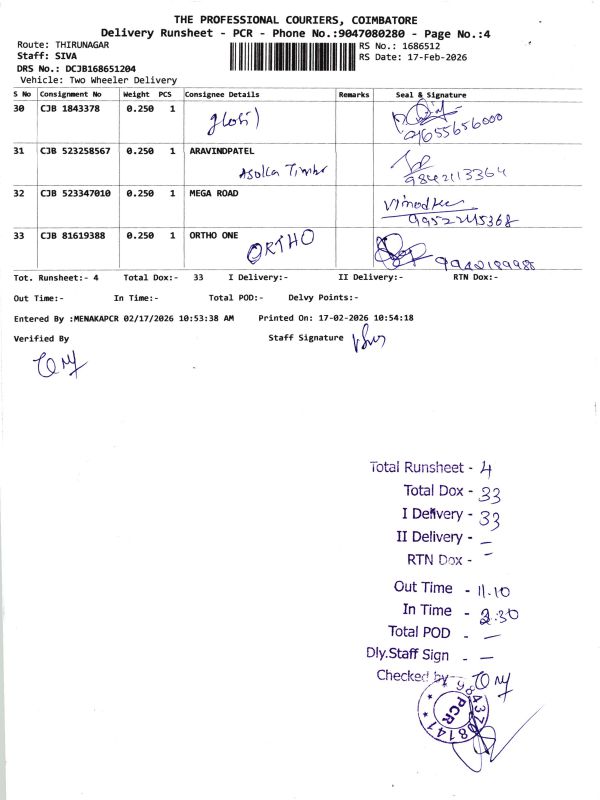 THE PROFESSIONAL COURIERS, COIMBATORE
Delivery Runsheet - PCR - Phone No.:9047080280 - Page No.:4
Route: THIRUNAGAR RS No.: 1686512
Staff: SIVA RS Date: 17-Feb-2026
DRS No.: DCJB168651204
Vehicle: Two Wheeler Delivery
S No Consignment No Weight PCS Consignee Details Remarks Seal & Signature
30 CJB 1843378 0.250 1
31 CJB 523258567 0.250 1 ARAVINDPATEL
Asolka Timbr 9842113364
32 CJB 523347010 0.250 1 MEGA ROAD
9952245368
33 CJB 81619388 0.250 1 ORTHO ONE
ORTHO
Tot. Runsheet:- 4 Total Dox:- 33 I Delivery:- II Delivery:- RTN Dox:-
Out Time:- In Time:- Total POD:- Delvy Points:-
Entered By :MENAKAPCR 02/17/2026 10:53:38 AM Printed On: 17-02-2026 10:54:18
Verified By Staff Signature
Total Runsheet - 4
Total Dox - 33
I Delivery - 33
II Delivery - –
RTN Dox - –
Out Time - 11.10
In Time - 2.30
Total POD - –
Dly.Staff Sign - –
Checked by
PCR